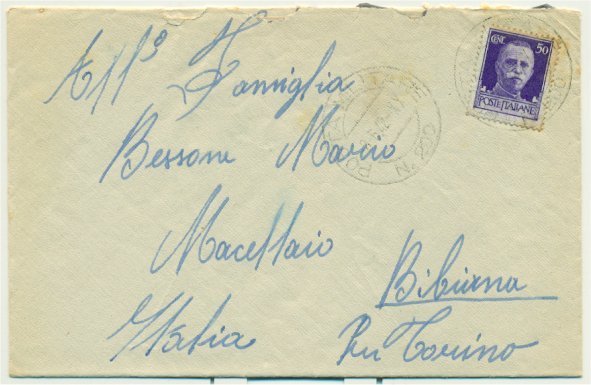 All° Famiglia
Bessone Mario
Macellaio
Bibiana
Italia Per Torino
CENT. 50
POSTE ITALIANE
N. 200